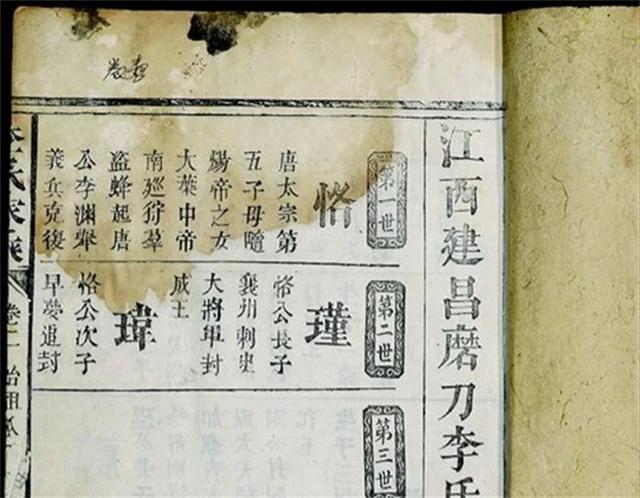 江西建昌磨刀李氏
第一世
恪
唐太宗第
五子母隨
煬帝之女
大葉中帝
南廵狩羣
盜蜂起唐
公李淵舉
義兵克復
第二世
瑾
恪公長子
襄州刺史
大將軍封
成王
瑋
恪公次子
早夢追封
第三世
李氏家族
卷二